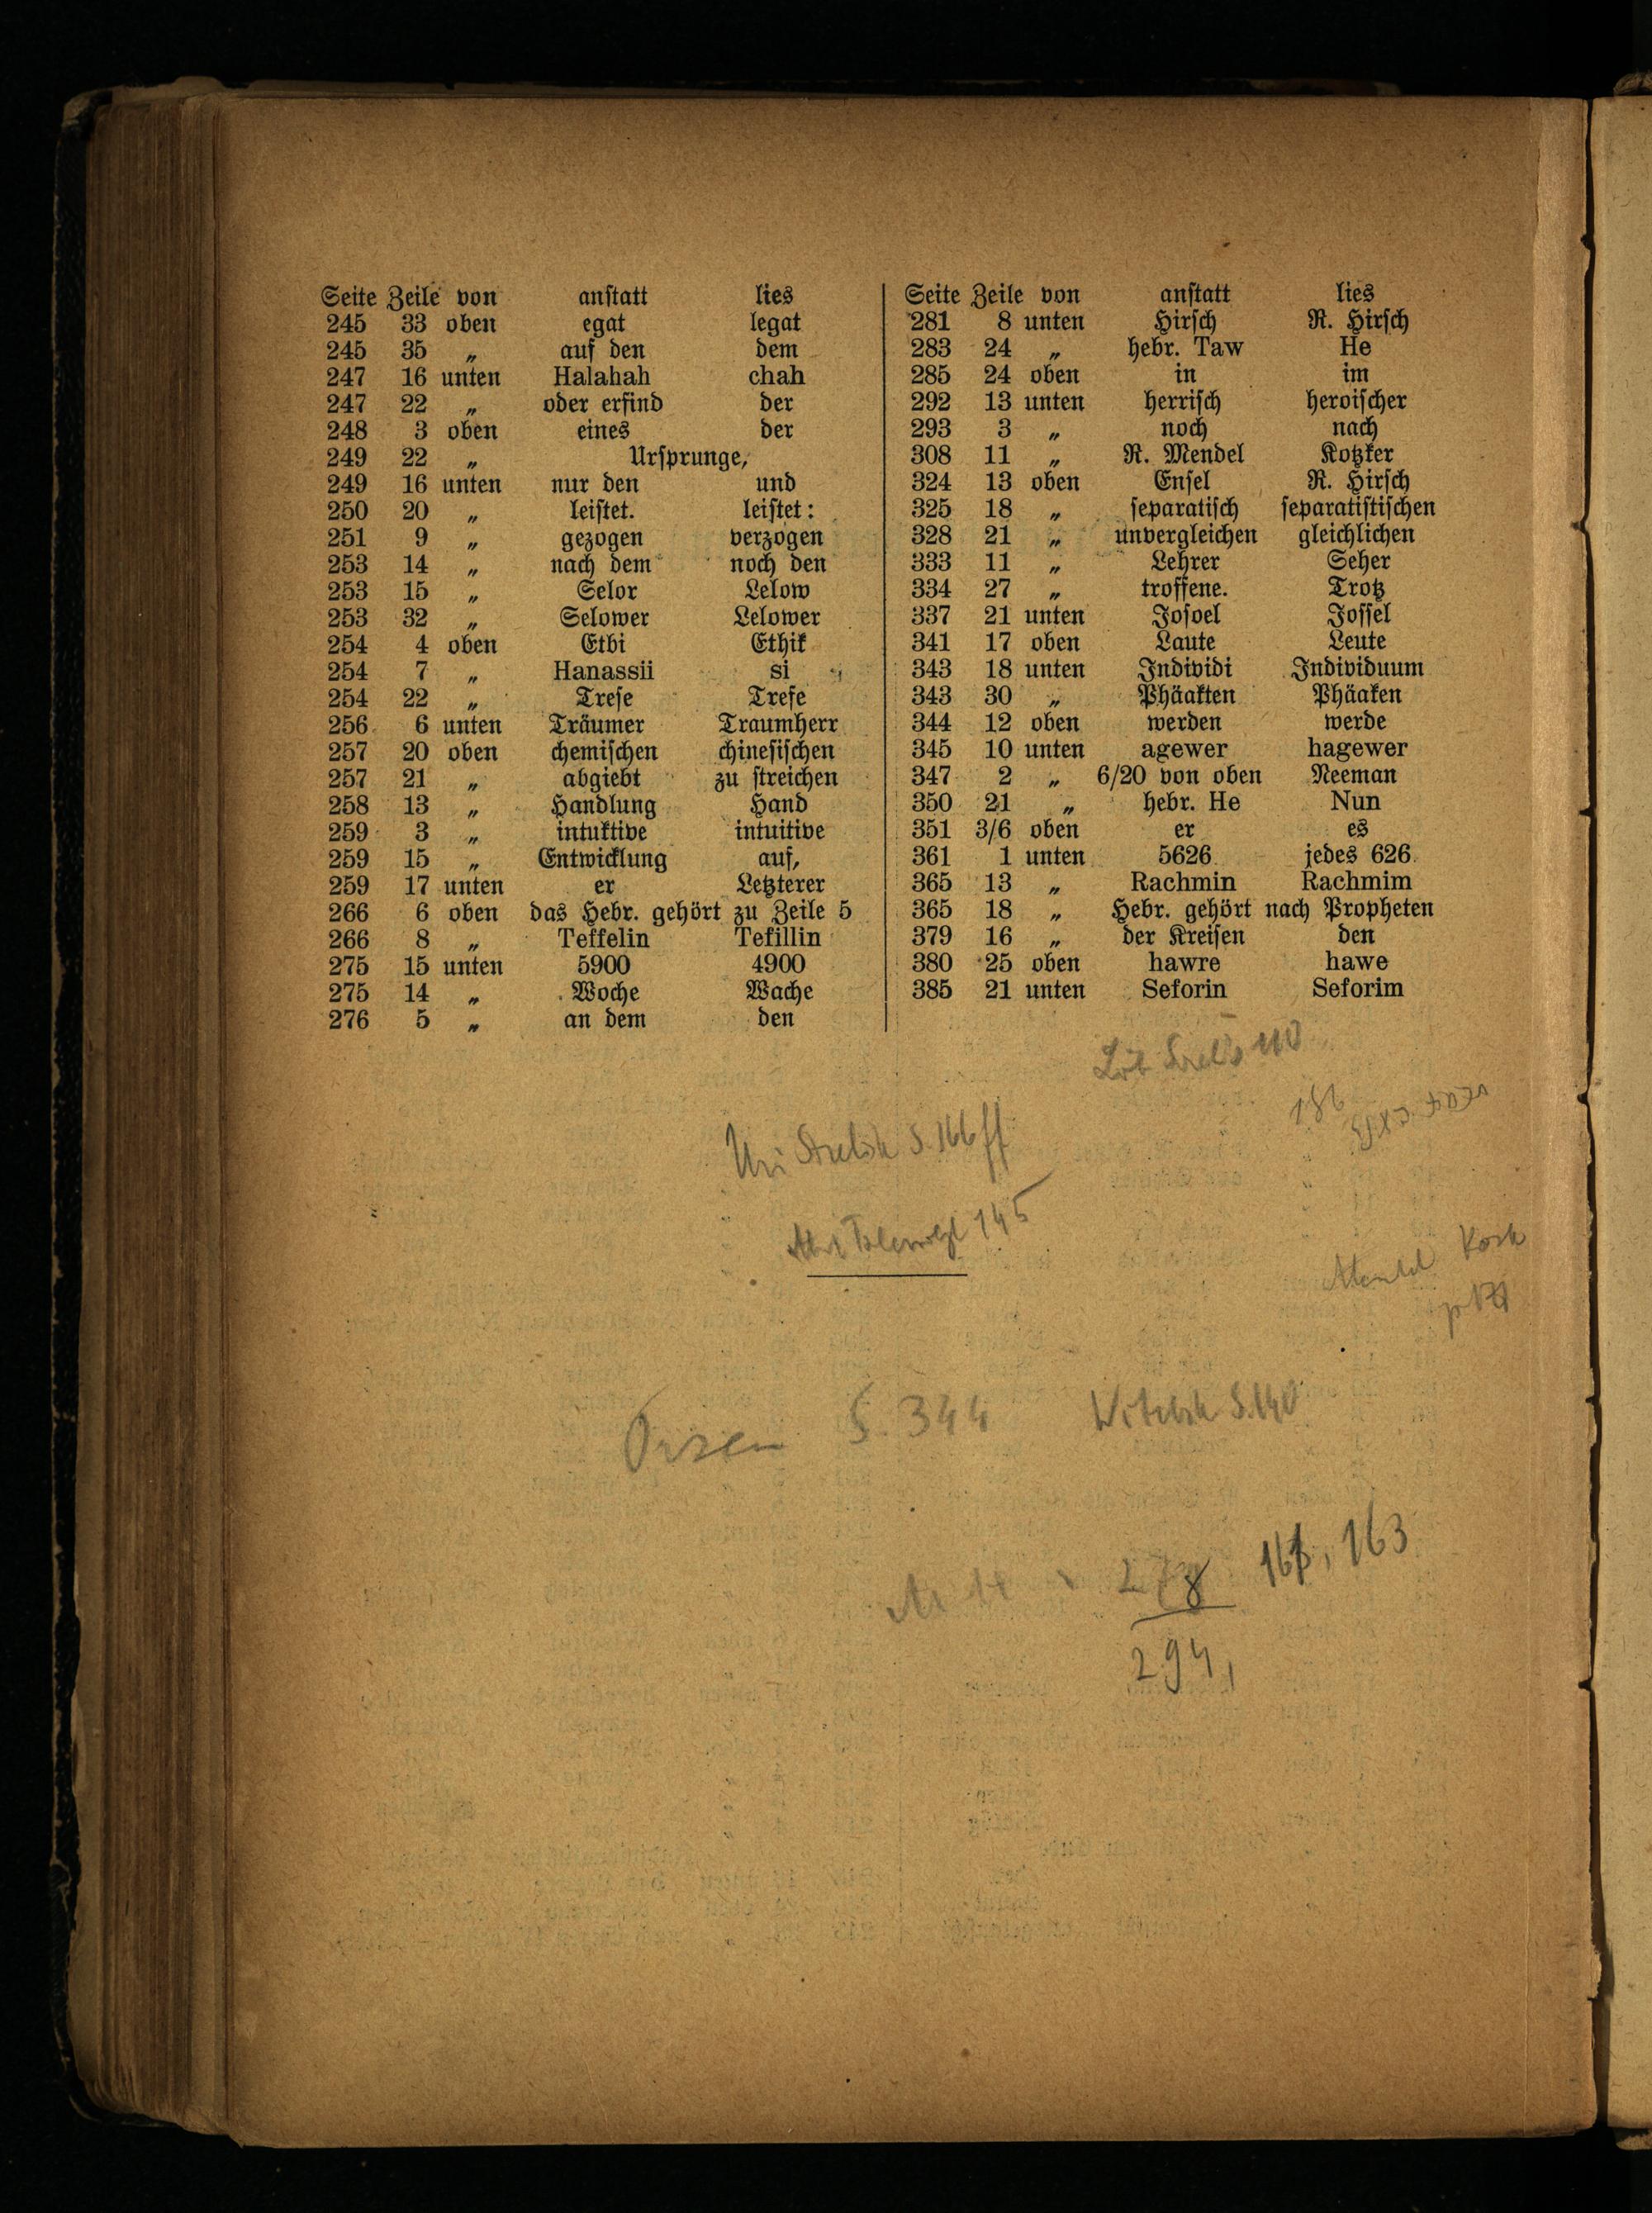 Seite Zeile von anstatt lies
245 33 oben egat legat
245 35 „ auf den dem
247 16 unten Halahah chah
247 22 „ oder erfind der
248 3 oben eines der
249 22 „ Ursprunge,
249 16 unten nur den und
250 20 „ leistet. leistet:
251 9 „ gezogen verzogen
253 14 „ nach dem noch den
253 15 „ Selor Lelow
253 32 „ Selower Lelower
254 4 oben Etbi Ethik
254 7 „ Hanassii si
254 22 „ Trese Trefe
256 6 unten Träumer Traumherr
257 20 oben chemischen chinesischen
257 21 „ abgiebt zu streichen
258 13 „ Handlung Hand
259 3 „ intuktive intuitive
259 15 „ Entwicklung auf,
259 17 unten er Letzterer
266 6 oben das Hebr. gehört zu Zeile 5
266 8 „ Teffelin Tefillin
275 15 unten 5900 4900
275 14 „ Woche Wache
276 5 „ an dem den
Seite Zeile von anstatt lies
281 8 unten Hirsch R. Hirsch
283 24 „ hebr. Taw He
285 24 oben in im
292 13 unten herrisch heroischer
293 3 „ noch nach
308 11 „ R. Mendel Kotzker
324 13 oben Ensel R. Hirsch
325 18 „ separatisch separatistischen
328 21 „ unvergleichen gleichlichen
333 11 „ Lehrer Seher
334 27 „ troffene. Trotz
337 21 unten Josoel Jossel
341 17 oben Laute Leute
343 18 unten Individi Individuum
343 30 „ Phäakten Phäaken
344 12 oben werden werde
345 10 unten agewer hagewer
347 2 „ 6/20 von oben Neeman
350 21 „ hebr. He Nun
351 3/6 oben er es
361 1 unten 5626 jedes 626
365 13 „ Rachmin Rachmim
365 18 „ Hebr. gehört nach Propheten
379 16 „ der Kreisen den
380 25 oben hawre hawe
385 21 unten Seforin Seforim
186
Uri Strelisk S. 166 ff
145
Mendel
S. 344
Witebsk S. 140
163
294,